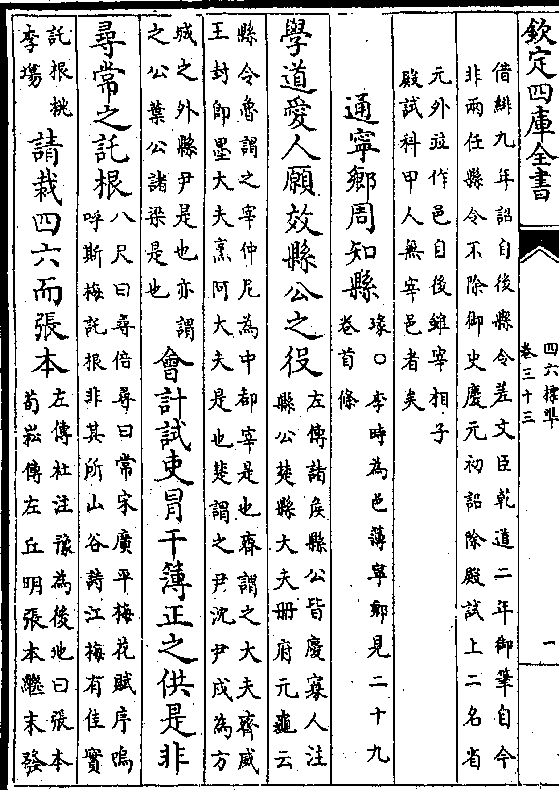 欽定四庫全書
四六標準
卷三十三
一
借緋九年詔自後縣令差文臣乾道二年御筆自今
非兩任縣令不除御史慶元初詔除殿試上二名省
元外竝作邑自後雖宰相子
殿試科甲人無宰邑者矣
通寧鄉周知縣
瑑○李時為邑薄寧鄉見二十九
卷首條
學道愛人願效縣公之役
左傳諸侯縣公皆慶寡人注
縣公楚縣大夫冊府元龜云
縣令魯謂之宰仲尼為中都宰是也齊謂之大夫齊威
王封即墨大夫烹阿大夫是也楚謂之尹沈尹戌為方
城之外縣尹是也亦謂
之公葉公諸梁是也
會計試吏冐干簿正之供是非
尋常之託根
八尺曰尋倍尋曰常宋廣平梅花賦序嗚
呼斯梅託根非其所山谷詩江梅有佳實
託根桃
李塲
請裁四六而張本
左傳杜注豫為後地曰張本
荀崧傳左丘明張本繼末發